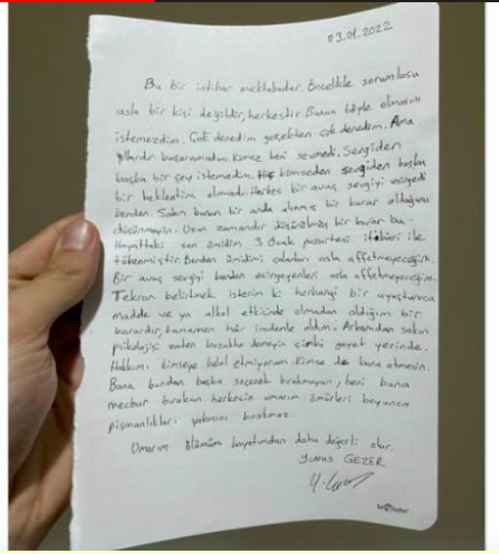 03.01.2022
Bu bir intihar mektubudur. Öncelikle sorumlusu
asla bir kişi değildir, herkestir. Bunun böyle olmasını
istemezdim. Çok denedim gerçekten çok denedim. Ama
yıllardır başaramadım. Kimse beni sevmedi. Sevgiden
başka bir şey istemedim. Hiç kimseden sevgiden başka
bir beklentim olmadı. Herkes bir avuç sevgiyi esirgedi
benden. Sakın bunun bir anda alınmış bir karar olduğunu
düşünmeyin. Uzun zamandır düşünülmüş bir karar bu.
Hayattaki son ümidim 3 Ocak pazartesi itibari ile
tükenmiştir. Benden ümidimi çalanları asla affetmeyeceğim.
Bir avuç sevgiyi benden esirgeyenleri asla affetmeyeceğim.
Tekrar belirtmek isterim ki herhangi bir uyuşturucu
madde ve ya alkol etkisinde olmadan aldığım bir
karardır, tamamen hür irademle aldım. Arkamdan sakın
psikolojisi zaten bozuktu demeyin çünkü gayet yerinde.
Hakkımı kimseye helal etmiyorum. Kimse de bana etmesin.
Bana bundan başka seçenek bırakmayan, beni buna
mecbur bırakan herkesin umarım ömürleri boyunca
pişmanlıkları yakasını bırakmaz.
Umarım ölümüm hayatımdan daha değerli olur.
YUNUS GEZER